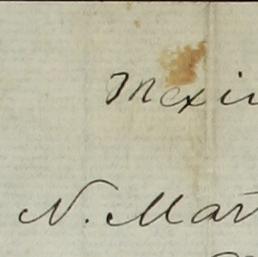 Mexi
N. Mar